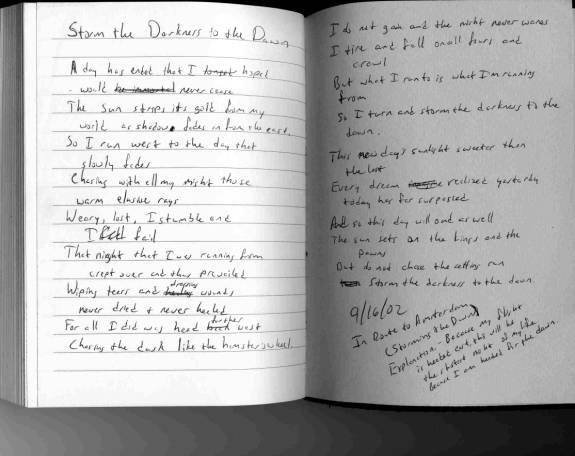 Storm the Darkness to the Dawn
A day has ended that I hoped
would never cease
The Sun strips its gold from my
world as shadows fades in from the east.
So I run west to the day that
slowly fades
Chasing with all my might those
warm elusive rays
Weary, lost, I stumble and
I fail
That night that I was running from
crept over and thus prevailed
Wiping tears and dripping wounds,
never dried & never healed
For all I did was head further west
Chasing the dusk like the hamsters wheel.
I do not gain and the night never wanes
I tire and fall on all fours and
crawl
But what I ran to is what I'm running
from
So I turn and storm the darkness to the
dawn.
This new day's sunlight sweeter than
the last
Every dream realized yesterday
today has far surpassed
And so this day will end as well
The sun sets on the kings and the
Pawns
But do not chase the setting sun
Storm the darkness to the dawn
9/16/02
In Route to Amsterdam
(Storming the Dawn)
Explanation - Because my flight
is headed east, this will be
the shortest night of my life
Because I am headed for the dawn.